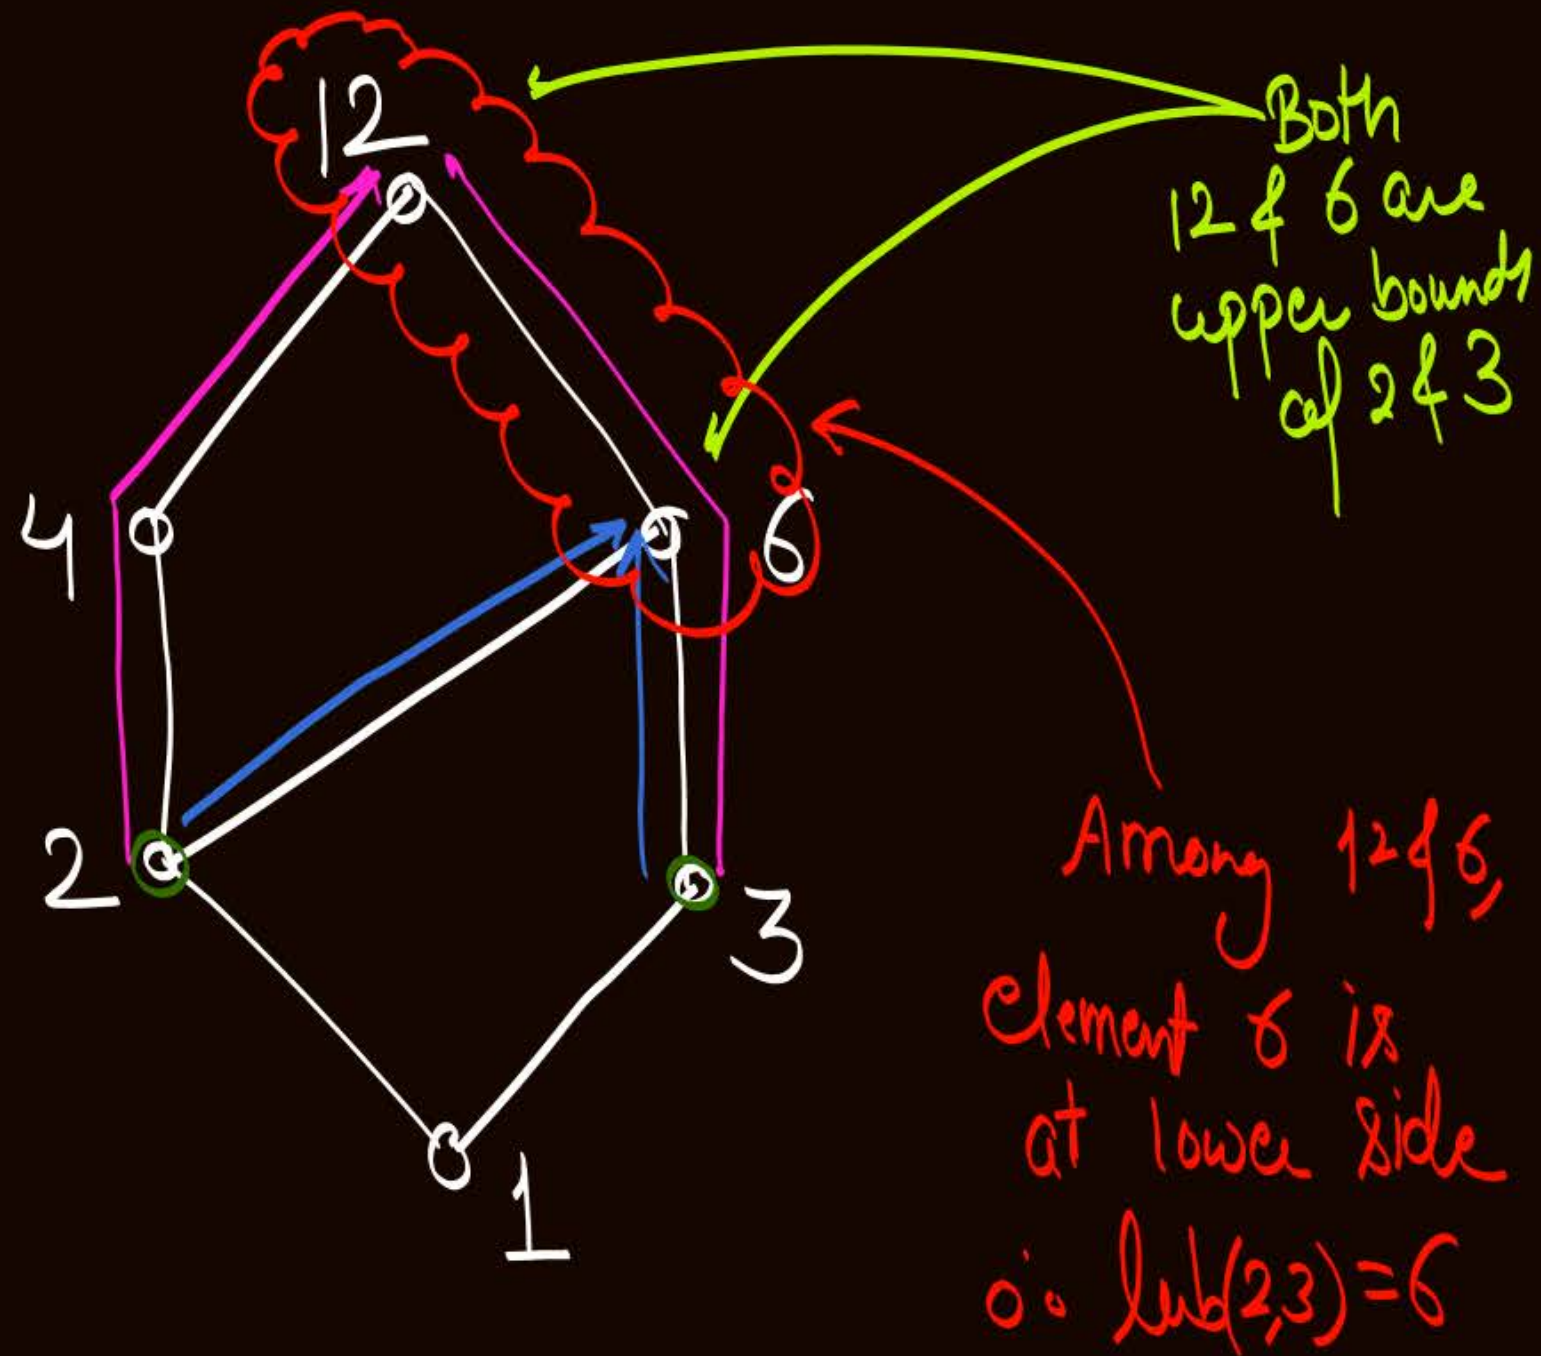 12
Both
12 & 6 are
upper bounds
of 2 & 3
4
6
2
3
Among 12 & 6,
element 6 is
at lower side
∴ lub(2,3)=6
1